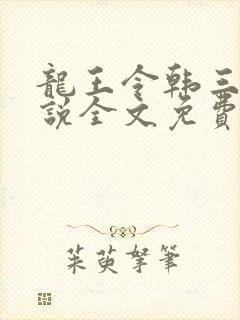 龍王令韩三
說全文免費
茱萸拏筆